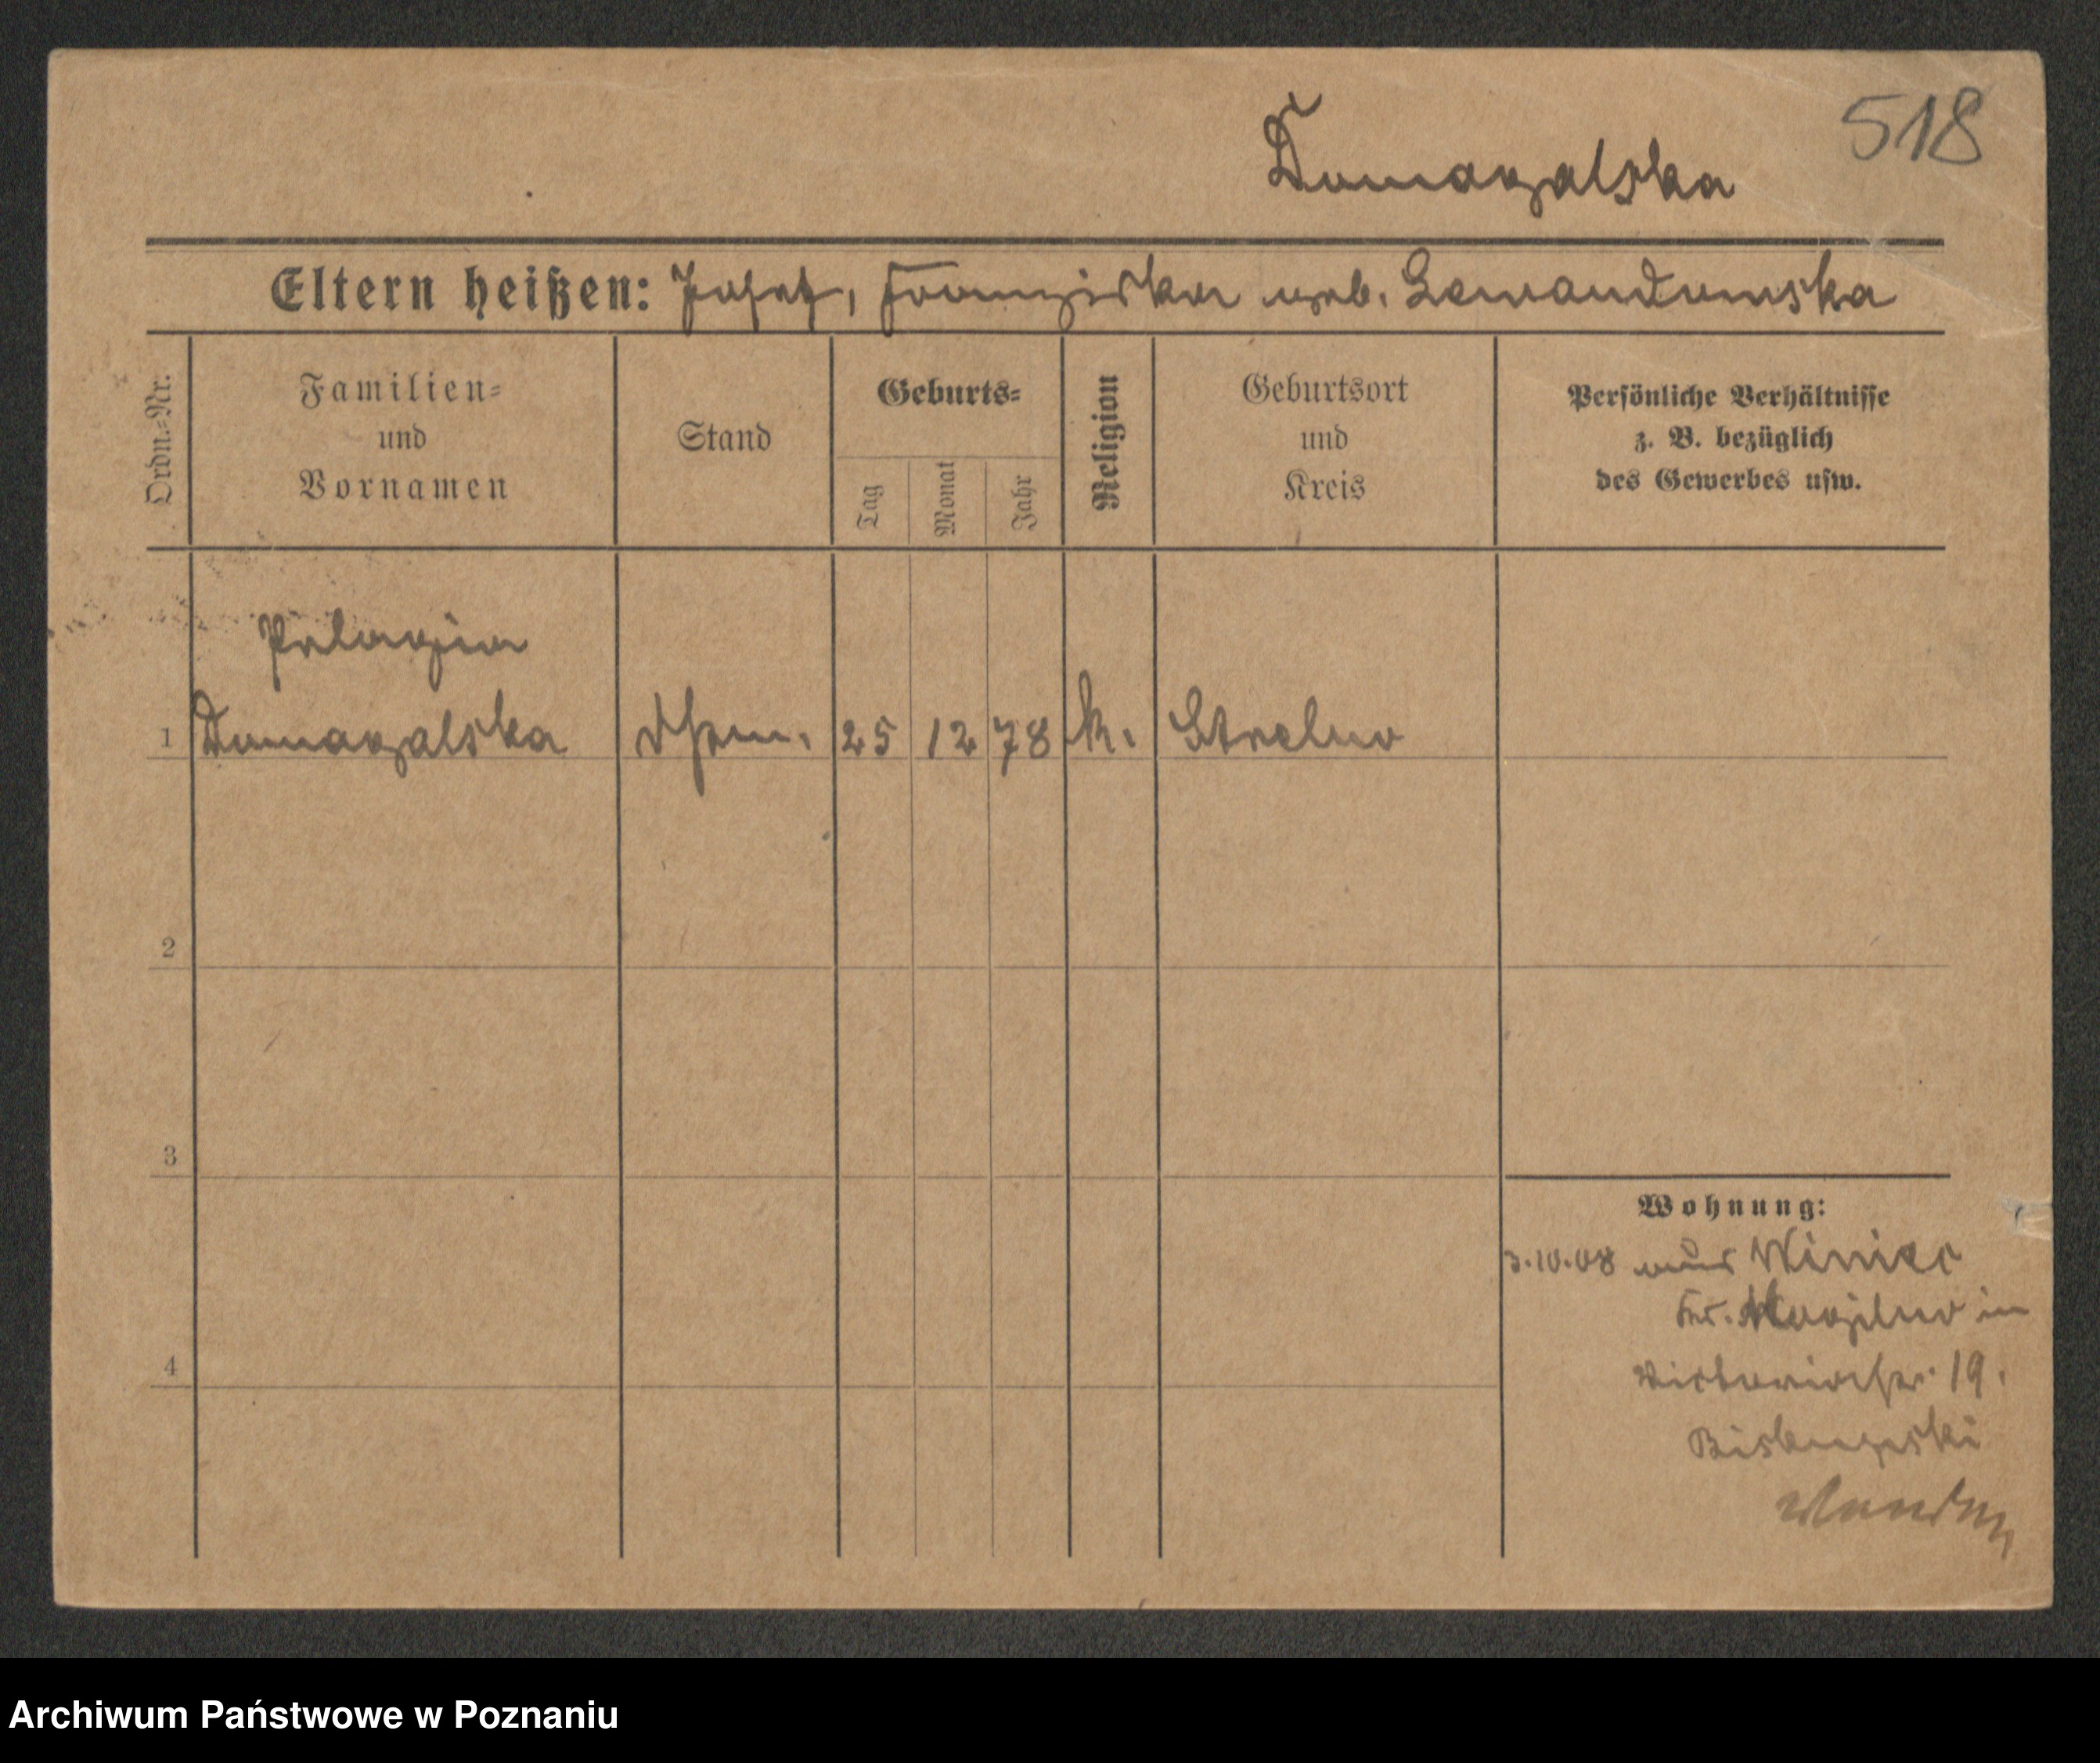 518
Domagalska
Eltern heißen: Josef, Franziska geb. Lewandowska
Ordn.=Nr.
Familien=
und
Vornamen
Stand
Geburts=
Tag
Monat
Jahr
Religion
Geburtsort
und
Kreis
Persönliche Verhältnisse
z. B. bezüglich
des Gewerbes usw.
Pelagia
1 Domagalska 25 12 78 k. Strelno
2
3
4
Wohnung:
3.10.08 aus Winiec
Kr. Mogilno in
Victoriastr. 19.
Archiwum Państwowe w Poznaniu